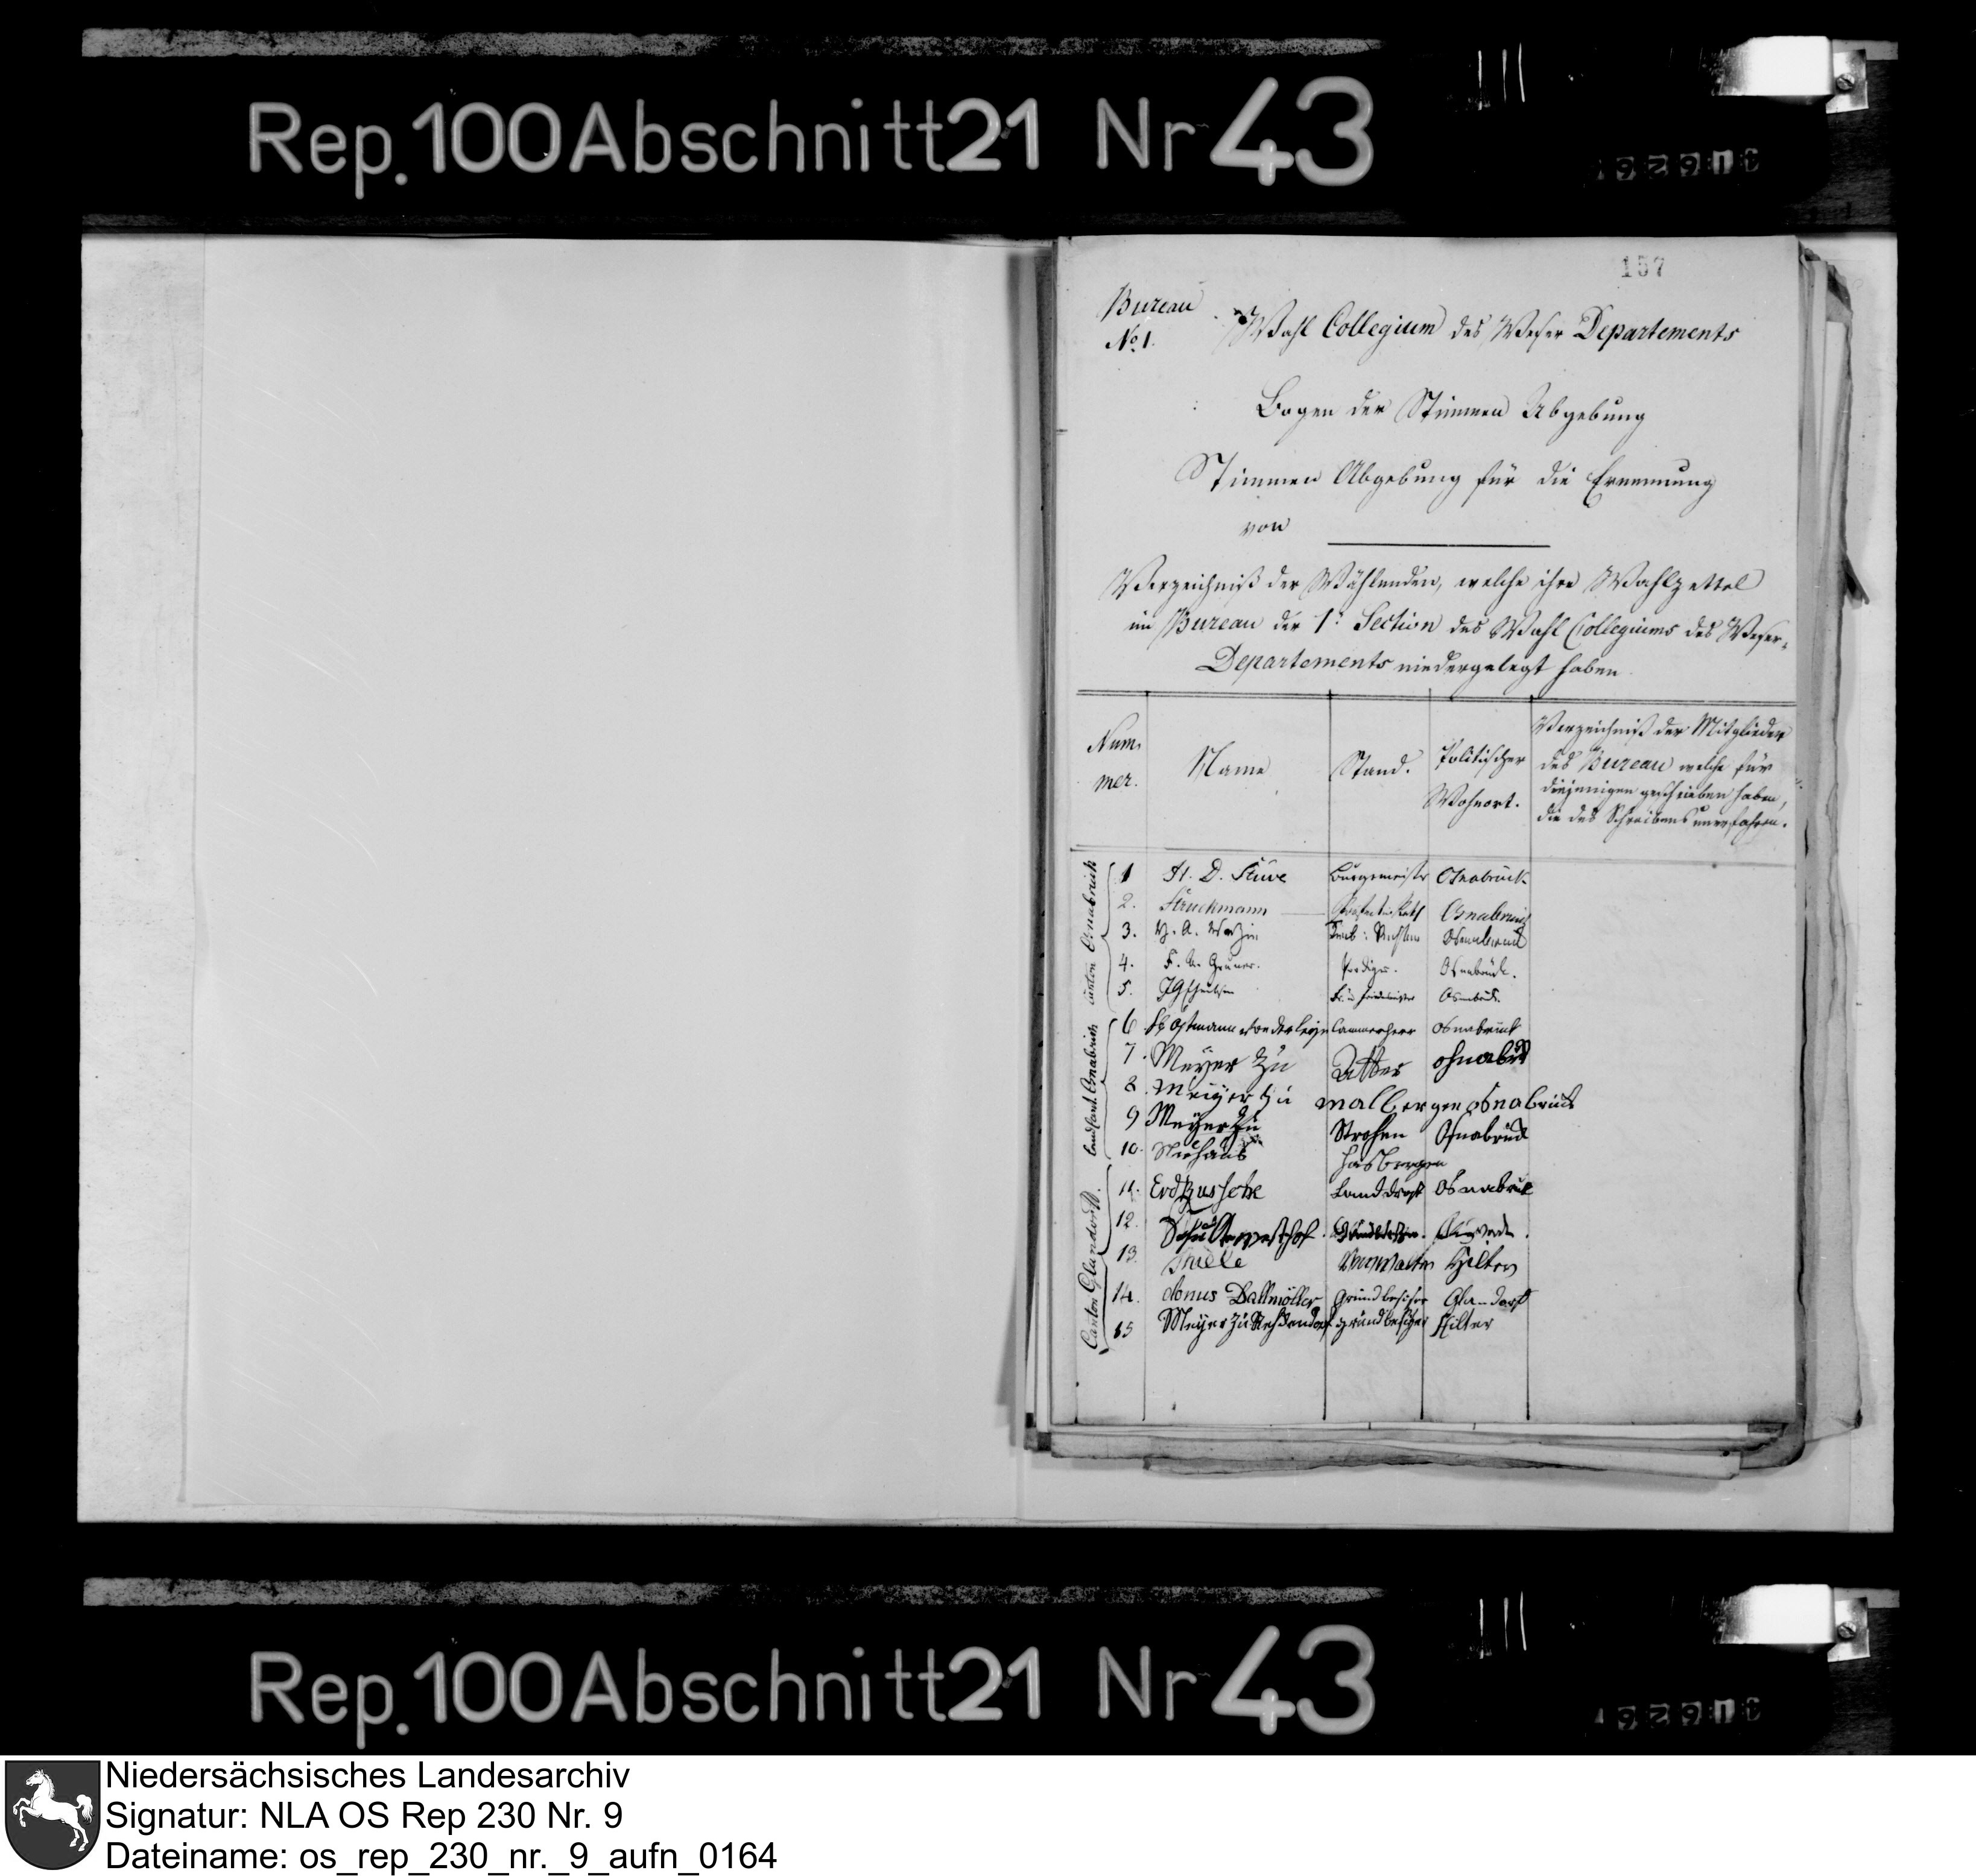 Rep. 100 Abschnitt 21 Nr 43
157
Bureau
No 1.
Wahl Collegium des Weser Departements
Bogen der Stimmen Abgebung
Stimmen Abgebung für die Ernennung
von
Verzeichniß der Wählenden, welche ihre Wahlzettel
im Bureau der 1. Section des Wahl Collegiums des Weser-
Departements niedergelegt haben
Num-
mer.
Name
Stand.
Politischer
Wohnort.
Verzeichniß der Mitglieder
des Bureau welche für
diejenigen geschrieben haben,
die des Schreibens unerfahren.
Canton Osnabrück
1 H. D. Stüve Burgemeister Osnabrück
2. Struckmann Osnabrück
3. Osnabrück
4. F. Gruner. Prediger. Osnabrück.
5. Osnabrück.
Landcant. Osnabrück
6 Ostmann von der Leye Cammerherr Osnabrück
7. Meyer zu Osnabrück
8. Meijer zu Malbergen Osnabrück
9 Meyer zu Strohen Osnabrück
10. Niehaus Hasbergen
Canton Glandorff.
11. Landdrost Osnabrück
12.
13. Thiele Verwalter Hilter
14. Dallmöller Grundbesitzer Glandorf
15 Meyer zu Grundbesitzer Hilter
Rep. 100 Abschnitt 21 Nr 43
Niedersächsisches Landesarchiv
Signatur: NLA OS Rep 230 Nr. 9
Dateiname: os_rep_230_nr._9_aufn_0164